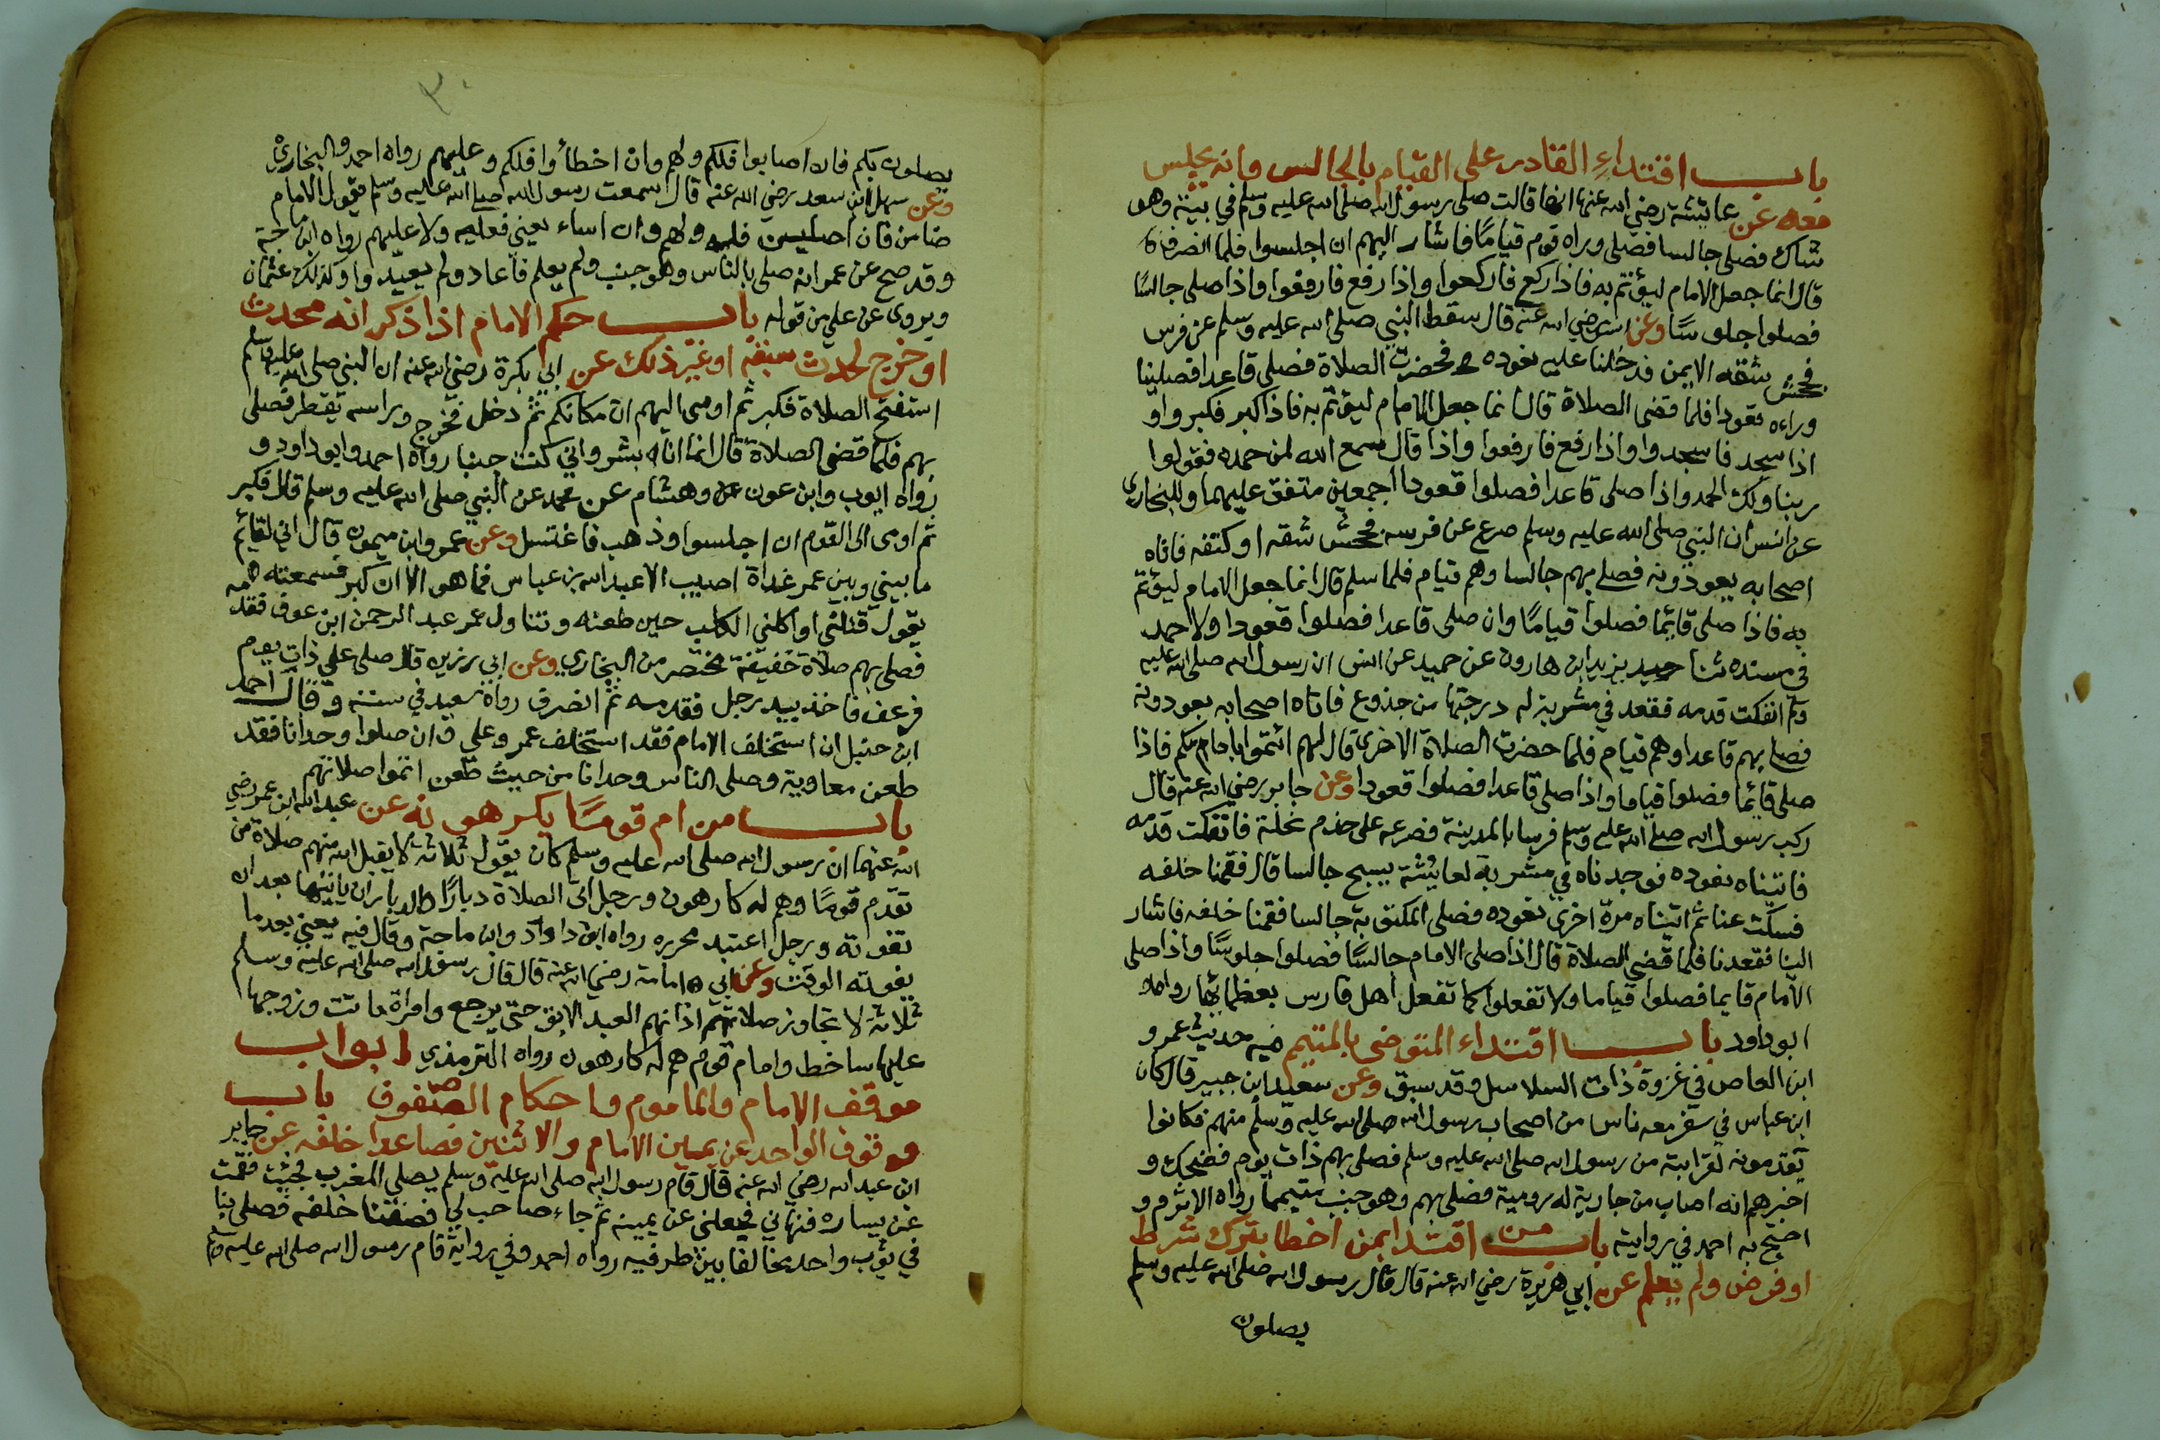 باب اقتداء القادر على القيام بالجالس وانه يجلس
معه عن عايشة رضي الله عنها انها قالت صلى رسول الله صلى الله عليه وسلم في بيته وهو
شاك فصلى جالسا فصلى وراه قوم قياما فاشار اليهم ان اجلسوا فلما انصرف
قال انما جعل الامام ليؤتم به فاذا ركع فاركعوا واذا رفع فارفعوا واذا صلى جالسا
فصلوا جلوسًا وعن انس رضي الله عنه قال سقط النبي صلى الله عليه وسلم عن فرس
فجحش شقه الايمن فدخلنا عليه نعوده فحضرت الصلاة فصلى قاعدا فصلينا
وراءه قعودا فلما قضى الصلاة قال انما جعل الامام ليؤتم به فاذا كبر فكبروا و
اذا سجد فاسجدوا واذا رفع فارفعوا واذا قال سمع الله لمن حمده فقولوا
ربنا ولك الحمد واذا صلى قاعدا فصلوا قعودا اجمعين متفق عليهما وللبخاري
عن انس ان النبي صلى الله عليه وسلم صرع عن فرسه فجحش شقه او كتفه فاتاه
اصحابه يعودونه فصلى بهم جالسا وهم قيام فلما سلم قال انما جعل الامام ليؤتم
به فاذا صلى قائما فصلوا قيامًا وان صلى قاعدا فصلوا قعودا ولاحمد
في مسنده ثنا يزيد ابن هارون عن حميد عن انس ان رسول الله صلى الله عليه
وسلم انفكت قدمه فقعد في مشربة له درجتها من جذوع فاتاه اصحابه يعودونه
فصلى بهم قاعدا وهم قيام فلما حضرت الصلاة الاخرى قال لهم ائتموا بامامكم فاذا
صلى قائما فصلوا قياما واذا صلى قاعدا فصلوا قعودا وعن جابر رضي الله عنه قال
ركب رسول الله صلى الله عليه وسلم فرسا بالمدينة فصرعه على جذم نخلة فانفكت قدمه
فاتيناه نعوده فوجدناه في مشربة لعايشة يسبح جالسا قال فقمنا خلفه
فسكت عنا ثم اتيناه مرة اخرى نعوده فصلى المكتوبة جالسا فقمنا خلفه فاشار
الينا فقعدنا فلما قضى الصلاة قال اذا صلى الامام جالسًا فصلوا جلوسًا واذا صلى
الامام قايما فصلوا قياما ولا تفعلوا كما تفعل اهل فارس بعظمائها رواه
ابو داود باب اقتداء المتوضي بالمتيمم فيه حديث عمرو
ابن العاص في غزوة ذات السلاسل وقد سبق وعن سعيد ابن جبير قال كان
ابن عباس في سفر معه ناس من اصحاب رسول الله صلى الله عليه وسلم منهم فكانوا
يقدمونه لقرابته من رسول الله صلى الله عليه وسلم فصلى بهم ذات يوم فضحك و
اخبرهم انه اصاب من جارية له رومية فصلى بهم وهو جنب متيمما رواه الاثرم و
احتج به احمد في روايته باب من اقتدا بمن اخطا بترك شرط
او فرض ولم يعلم عن ابي هريرة رضي الله عنه قال قال رسول الله صلى الله عليه وسلم
يصلون
٣٠
يصلون بكم فان اصابوا فلكم ولهم وان اخطأوا فلكم وعليهم رواه احمد والبخاري
وعن سهل ابن سعد رضي الله عنه قال سمعت رسول الله صلى الله عليه وسلم يقول الامام
ضامن فان احسن فله ولهم وان اساء يعني فعليه ولا عليهم رواه ابن ماجة
وقد صح عن عمر انه صلى بالناس وهو جنب ولم يعلم فاعاد ولم يعيدوا وكذلك عثمان
ويروى عن علي من قوله باب حكم الامام اذا ذكر انه محدث
او خرج لحدث سبقه او غير ذلك عن ابي بكرة رضي الله عنه ان النبي صلى الله عليه وسلم
استفتح الصلاة فكبر ثم اومى اليهم ان مكانكم ثم دخل فخرج وراسه يقطر فصلى
بهم فلما قضى الصلاة قال انما انا بشر واني كنت جنبا رواه احمد وابو داود و
رواه ايوب وابن عون وهشام عن محمد عن النبي صلى الله عليه وسلم قال فكبر
ثم اومى الى القوم ان اجلسوا وذهب فاغتسل وعن عمرو ابن ميمون قال اني لقائم
ما بيني وبين عمر غداة اصيب الا عبد الله بن عباس فما هو الا ان كبر فسمعته
يقول قتلني او اكلني الكلب حين طعنه وتناول عمر عبد الرحمن ابن عوف فقدمه
فصلى بهم صلاة خفيفة مختصر من البخاري وعن ابي رزين قال صلى علي ذات يوم
فرعف فاخذ بيد رجل فقدمه ثم انصرف رواه سعيد في سننه وقال احمد
ابن حنبل ان استخلف الامام فقد استخلف عمر وعلي وان صلوا وحدانا فقد
طعن معاوية وصلى الناس وحدانا من حيث طعن اتموا صلاتهم
باب من ام قومًا يكرهونه عن عبد الله ابن عمر رضي
الله عنهما ان رسول الله صلى الله عليه وسلم كان يقول ثلاثة لا يقبل الله منهم صلاة من
تقدم قومًا وهم له كارهون ورجل اتى الصلاة دبارًا والدبار ان ياتيها بعد ان
تفوته ورجل اعتبد محرره رواه ابو داود وابن ماجة وقال فيه يعني بعد ما
يفوته الوقت وعن ابي امامة رضي الله عنه قال قال رسول الله صلى الله عليه وسلم
ثلاثة لا تجاوز صلاتهم اذانهم العبد الابق حتى يرجع وامراة باتت وزوجها
عليها ساخط وامام قوم هم له كارهون رواه الترمذي ابواب
موقف الامام والماموم واحكام الصفوف باب
وقوف الواحد عن يمين الامام والاثنين فصاعدا خلفه عن جابر
ابن عبد الله رضي الله عنه قال قام رسول الله صلى الله عليه وسلم يصلي المغرب فجئت فقمت
عن يساره فنهاني فجعلني عن يمينه ثم جاء صاحب لي فصففنا خلفه فصلى بنا
في ثوب واحد مخالفا بين طرفيه رواه احمد وفي رواية قام رسول الله صلى الله عليه وسلم